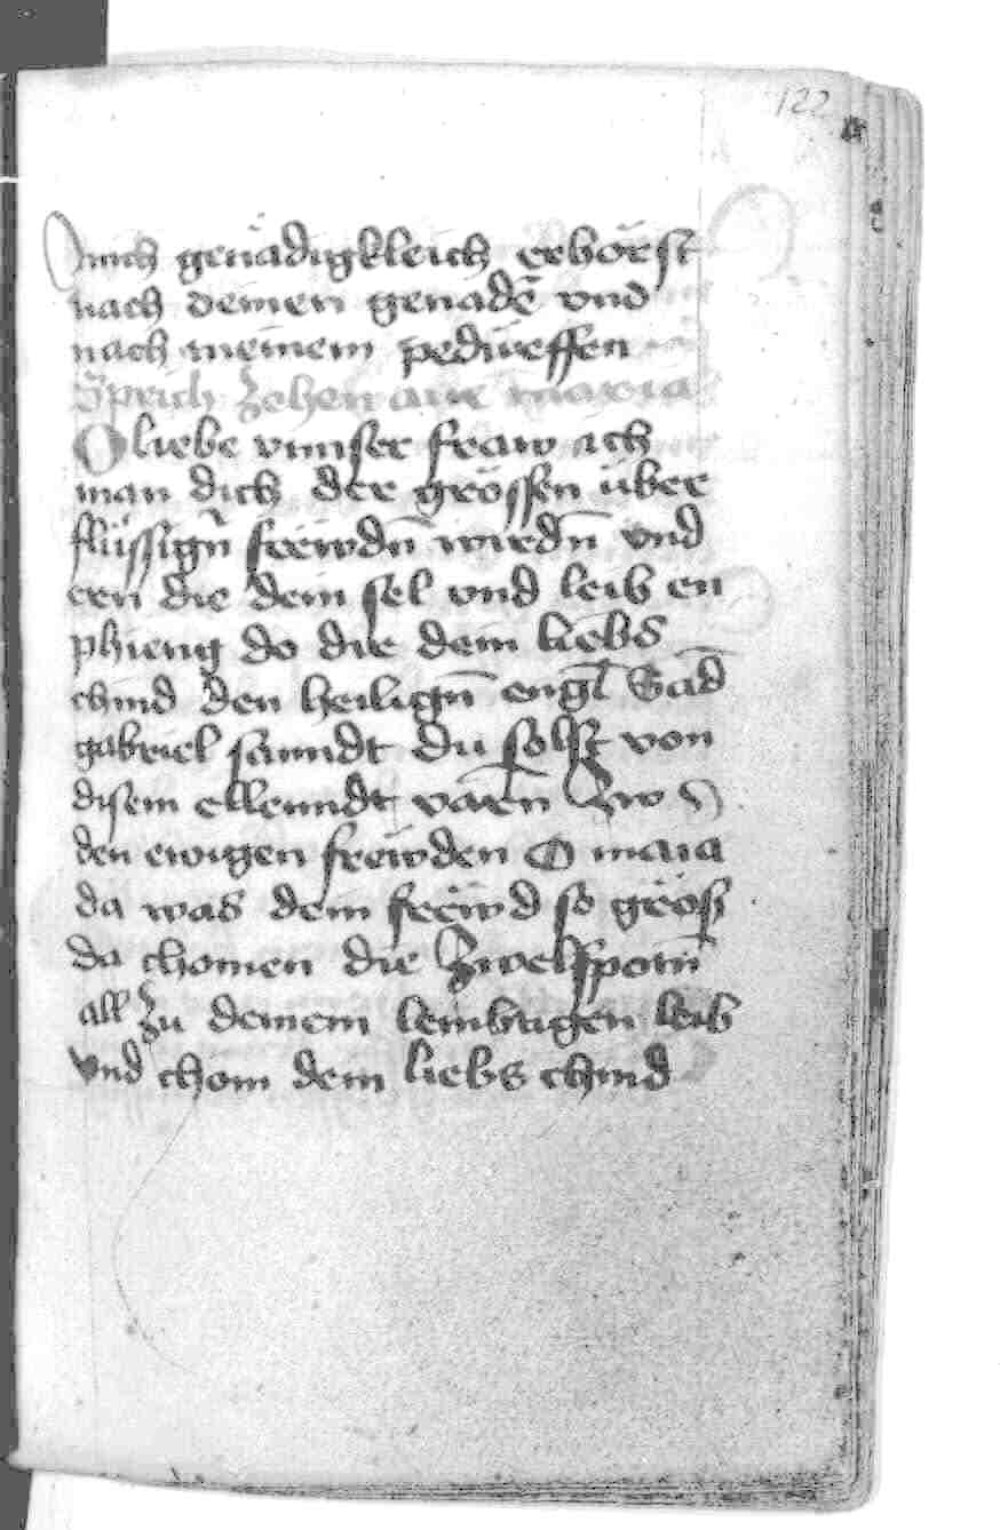 122
mich genädigkleich erhörst
nach deinen genadē vnd
nach meinem pedürffen
Sprich zehen aue maria
O liebe vnnser fraw ich
man dich der grössen über
flüssigñ frëwdñ wirdñ vnd
ern die dein sel vnd leib en
phieng do dir dein liebs
chind den heiligñ engl̄ Sād
gabriel sanndt du solst von
disem ellenndt varen zw
den ewigen frëwden O maia
da was dein frëwd so gröſs
da chomen die zwelfpotñ
all zu deinem lembtigen leib
vnd chom dein liebs chind